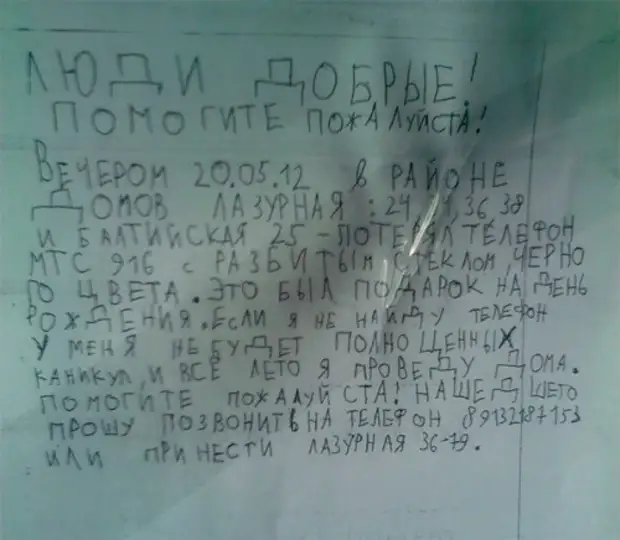 ЛЮДИ ДОБРЫЕ!
ПОМОГИТЕ ПОЖАЛУЙСТА!
ВЕЧЕРОМ 20.05.12 В РАЙОНЕ
ДОМОВ ЛАЗУРНАЯ : 24, 36, 38
И БАЛТИЙСКАЯ 25 - ПОТЕРЯЛ ТЕЛЕФОН
МТС 916 С РАЗБИТЫМ СТЕКЛОМ, ЧЕРНО
ГО ЦВЕТА. ЭТО БЫЛ ПОДАРОК НА ДЕНЬ
РОЖДЕНИЯ. ЕСЛИ Я НЕ НАЙДУ ТЕЛЕФОН
У МЕНЯ НЕ БУДЕТ ПОЛНОЩЕННЫХ
КАНИКУЛ, И ВСЁ ЛЕТО Я ПРОВЕДУ ДОМА.
ПОМОГИТЕ ПОЖАЛУЙСТА! НАШЕДШЕГО
ПРОШУ ПОЗВОНИТЬ НА ТЕЛЕФОН 89132187153
ИЛИ ПРИНЕСТИ ЛАЗУРНАЯ 36-79.